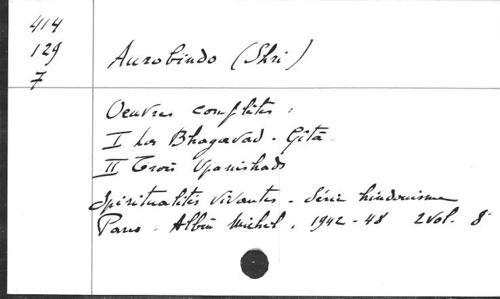 414
129
7
Aurobindo (Shri)
Oeuvres complètes :
I La Bhagavad - Gîtâ
II Trois Upanishads
Spiritualités vivantes - Série hindouisme
Paris - Albin Michel, 1942 - 48 2 vol. 8°